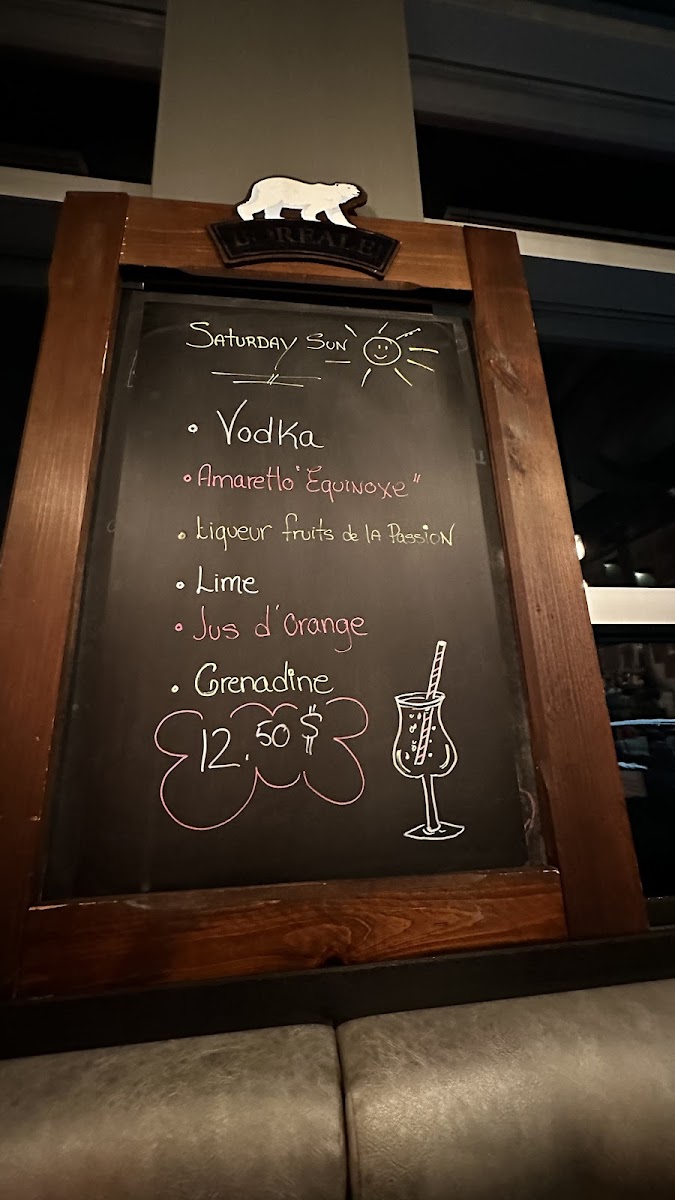 BORÉALE
Saturday Sun
• Vodka
• Amaretto "Équinoxe"
• Liqueur fruits de la Passion
• Lime
• Jus d'orange
• Grenadine
12.50 $